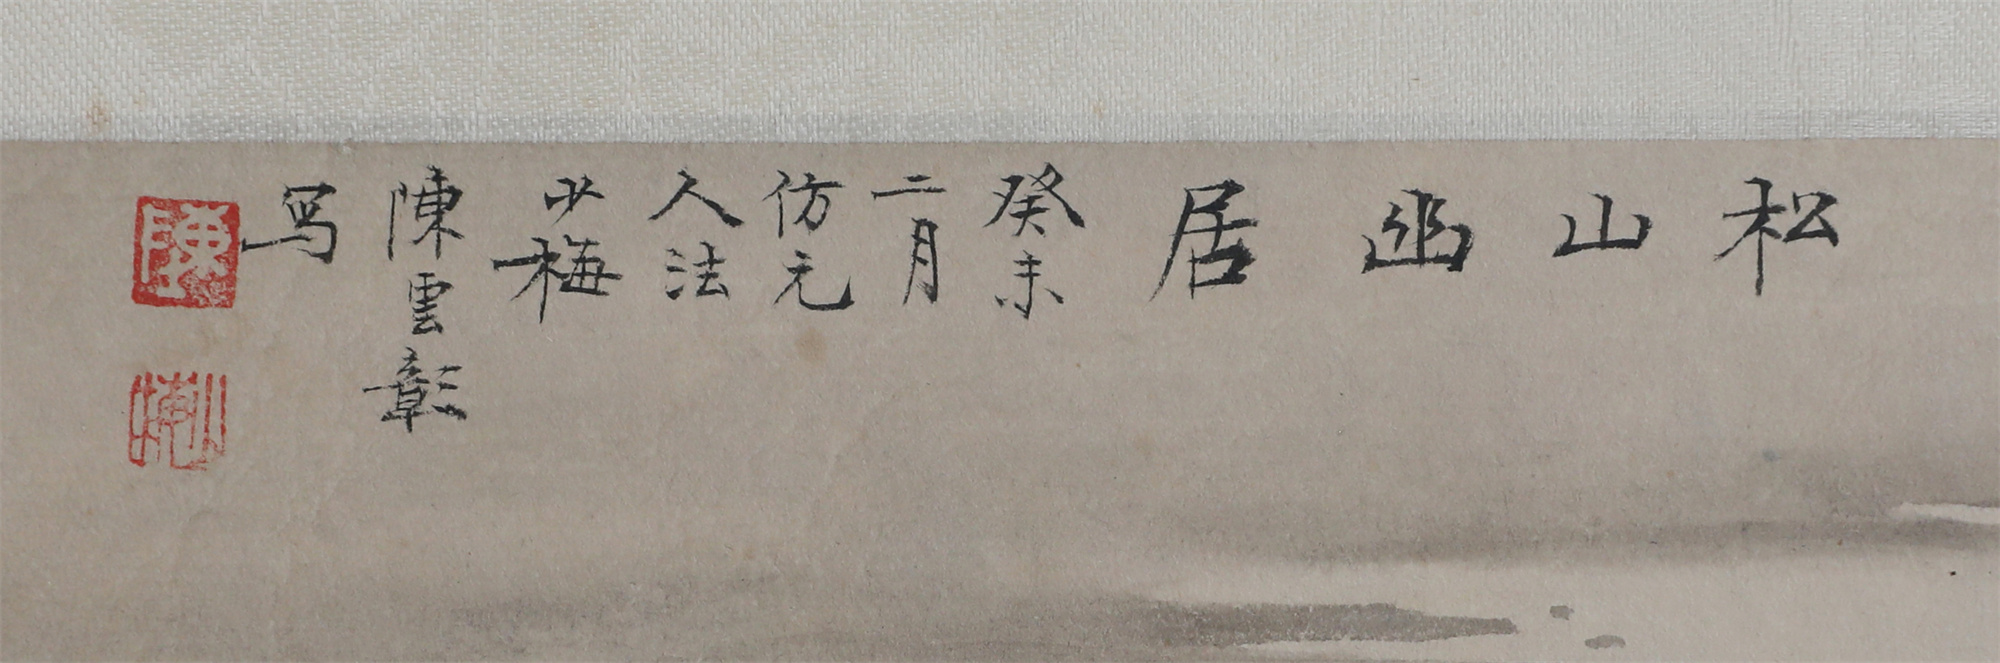 松
山
幽
居
癸未
二月
仿元
人法
少梅
陳雲彰
写
陳
少梅